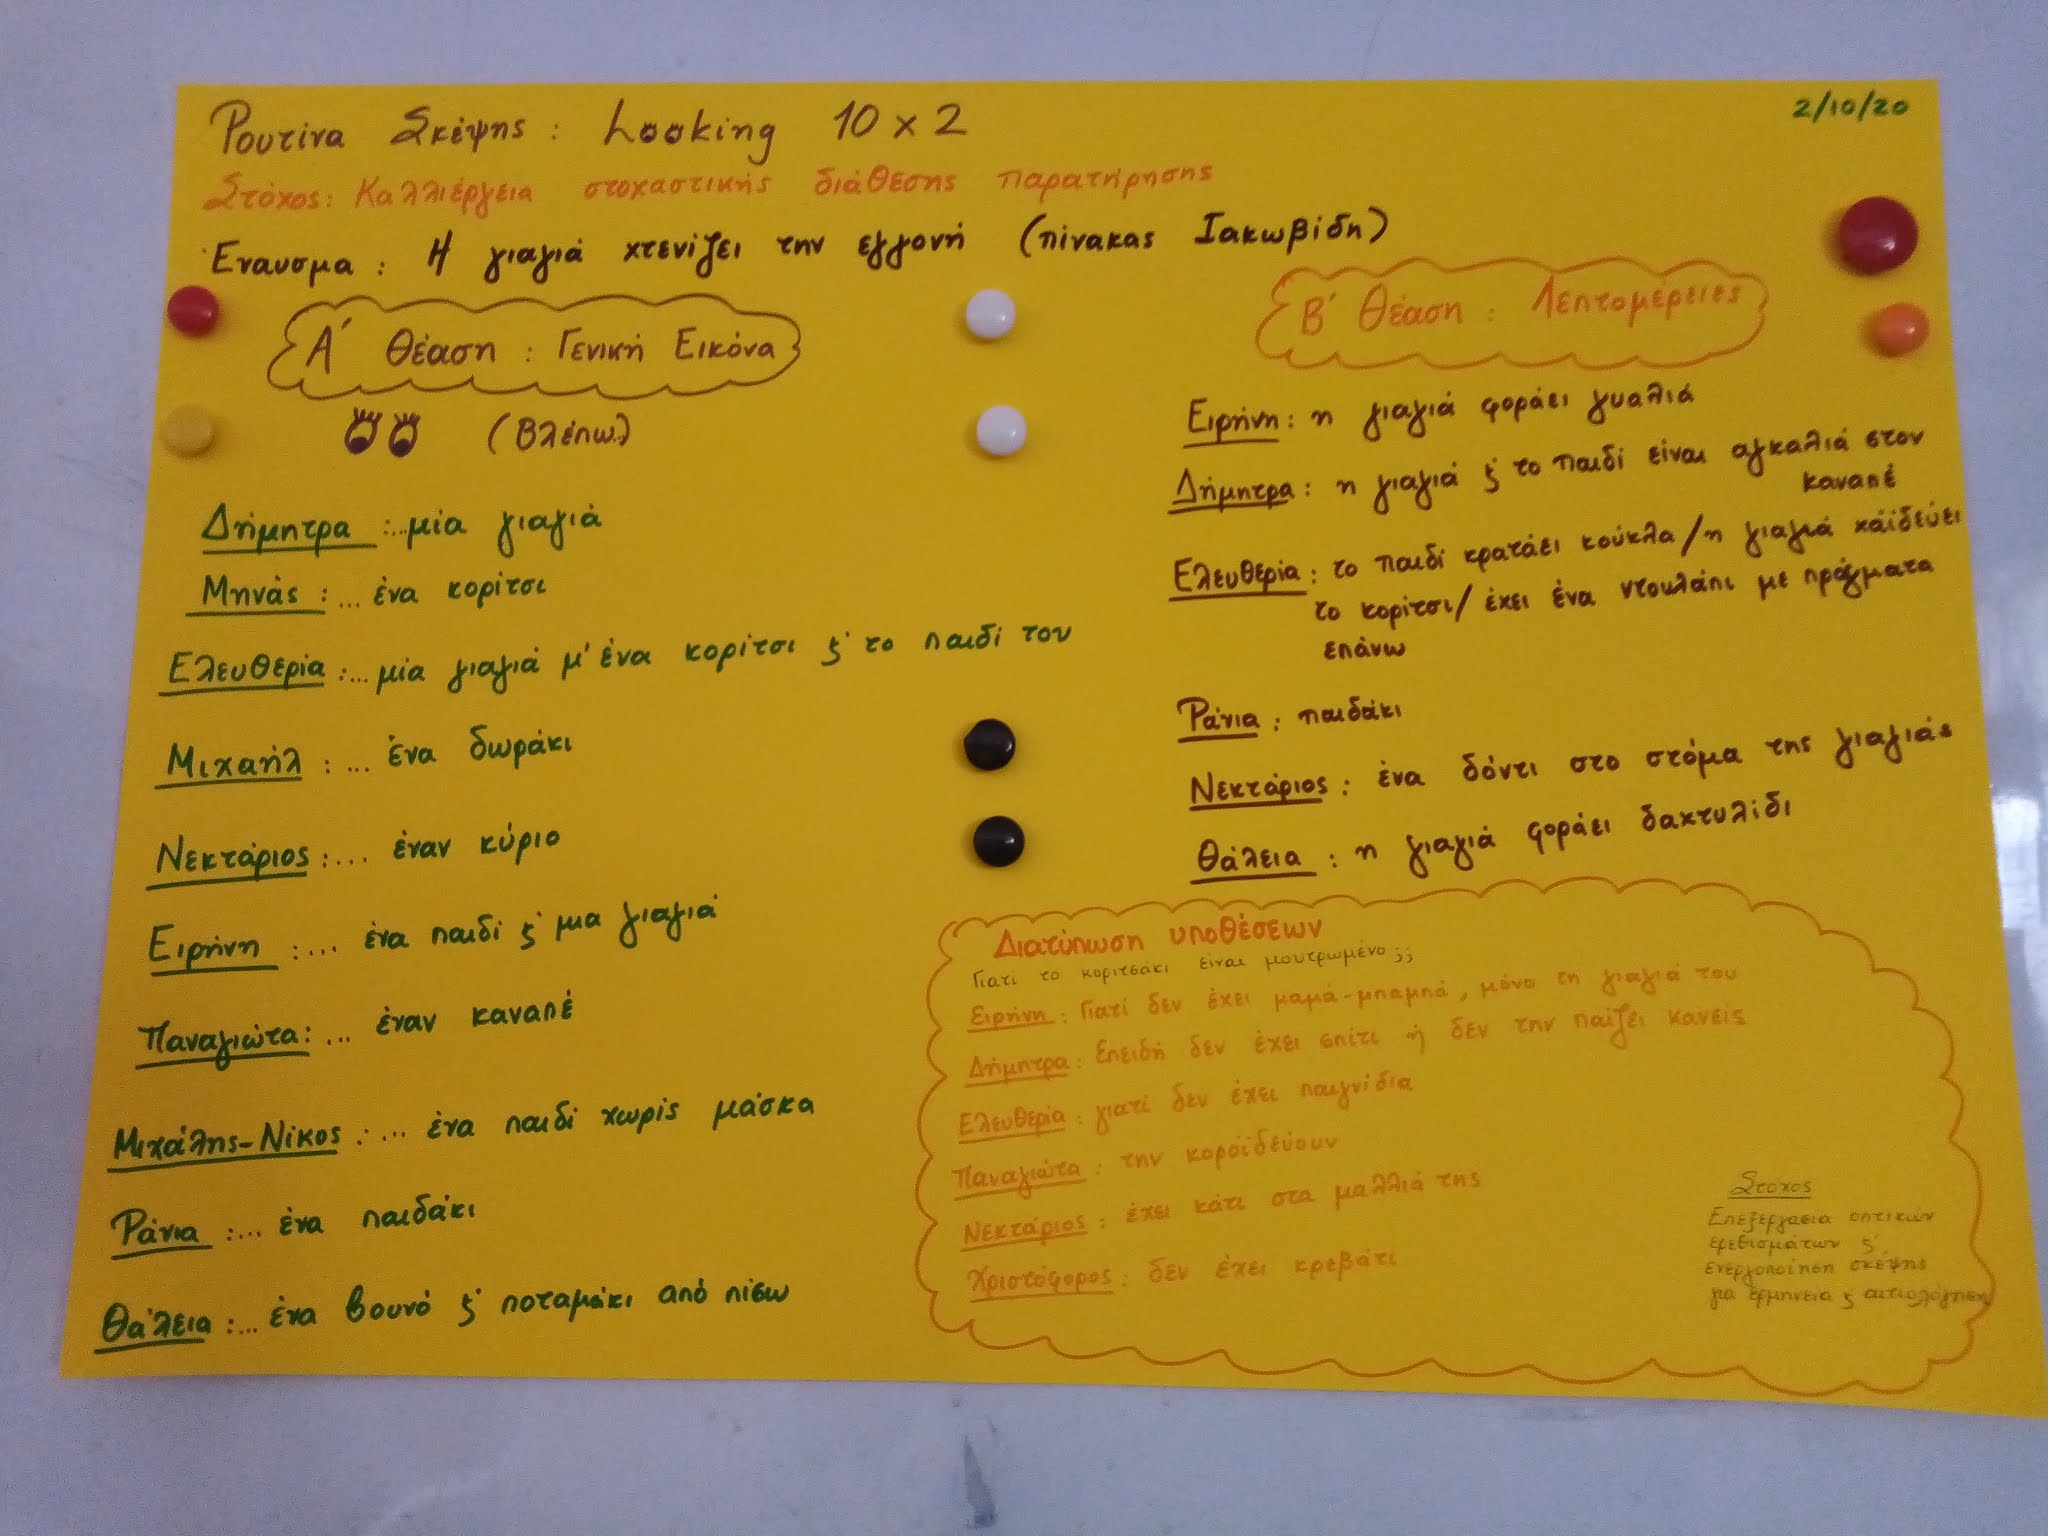 Ρουτίνα Σκέψης : Looking 10 x 2
2/10/20
Στόχος: Καλλιέργεια στοχαστικής διάθεσης παρατήρησης
Έναυσμα : Η γιαγιά χτενίζει την εγγονή (πίνακας Ιακωβίδη)
Α΄ Θέαση : Γενική Εικόνα
(Βλέπω..)
Δήμητρα :...μία γιαγιά
Μηνάς :... ένα κορίτσι
Ελευθερία :... μία γιαγιά μ' ένα κορίτσι ϛ' το παιδί του
Μιχαήλ : ... ένα δωράκι
Νεκτάριος :... έναν κύριο
Ειρήνη :... ένα παιδί ϛ' μια γιαγιά
Παναγιώτα: ... έναν καναπέ
Μιχάλης-Νίκος :... ένα παιδί χωρίς μάσκα
Ράνια :... ένα παιδάκι
Θάλεια :... ένα βουνό ϛ' ποταμάκι από πίσω
Β΄ Θέαση : Λεπτομέρειες
Ειρήνη : η γιαγιά φοράει γυαλιά
Δήμητρα : η γιαγιά ϛ' το παιδί είναι αγκαλιά στον
καναπέ
Ελευθερία : το παιδί κρατάει κούκλα/η γιαγιά χαϊδεύει
το κορίτσι/ έχει ένα ντουλάπι με πράγματα
επάνω
Ράνια : παιδάκι
Νεκτάριος : ένα δόντι στο στόμα της γιαγιάς
Θάλεια : η γιαγιά φοράει δαχτυλίδι
Διατύπωση υποθέσεων
Γιατί το κοριτσάκι είναι μουτρωμένο ;;
Ειρήνη : Γιατί δεν έχει μαμά-μπαμπά, μόνο τη γιαγιά του
Δήμητρα : Επειδή δεν έχει σπίτι ή δεν την παίζει κανείς
Ελευθερία : γιατί δεν έχει παιχνίδια
Παναγιώτα : την κοροϊδεύουν
Νεκτάριος : έχει κάτι στα μαλλιά της
Χριστόφορος : δεν έχει κρεβάτι
Στόχος
Επεξεργασία οπτικών
ερεθισμάτων ϛ'
ενεργοποίηση σκέψης
για ερμηνεία ϛ αιτιολόγηση